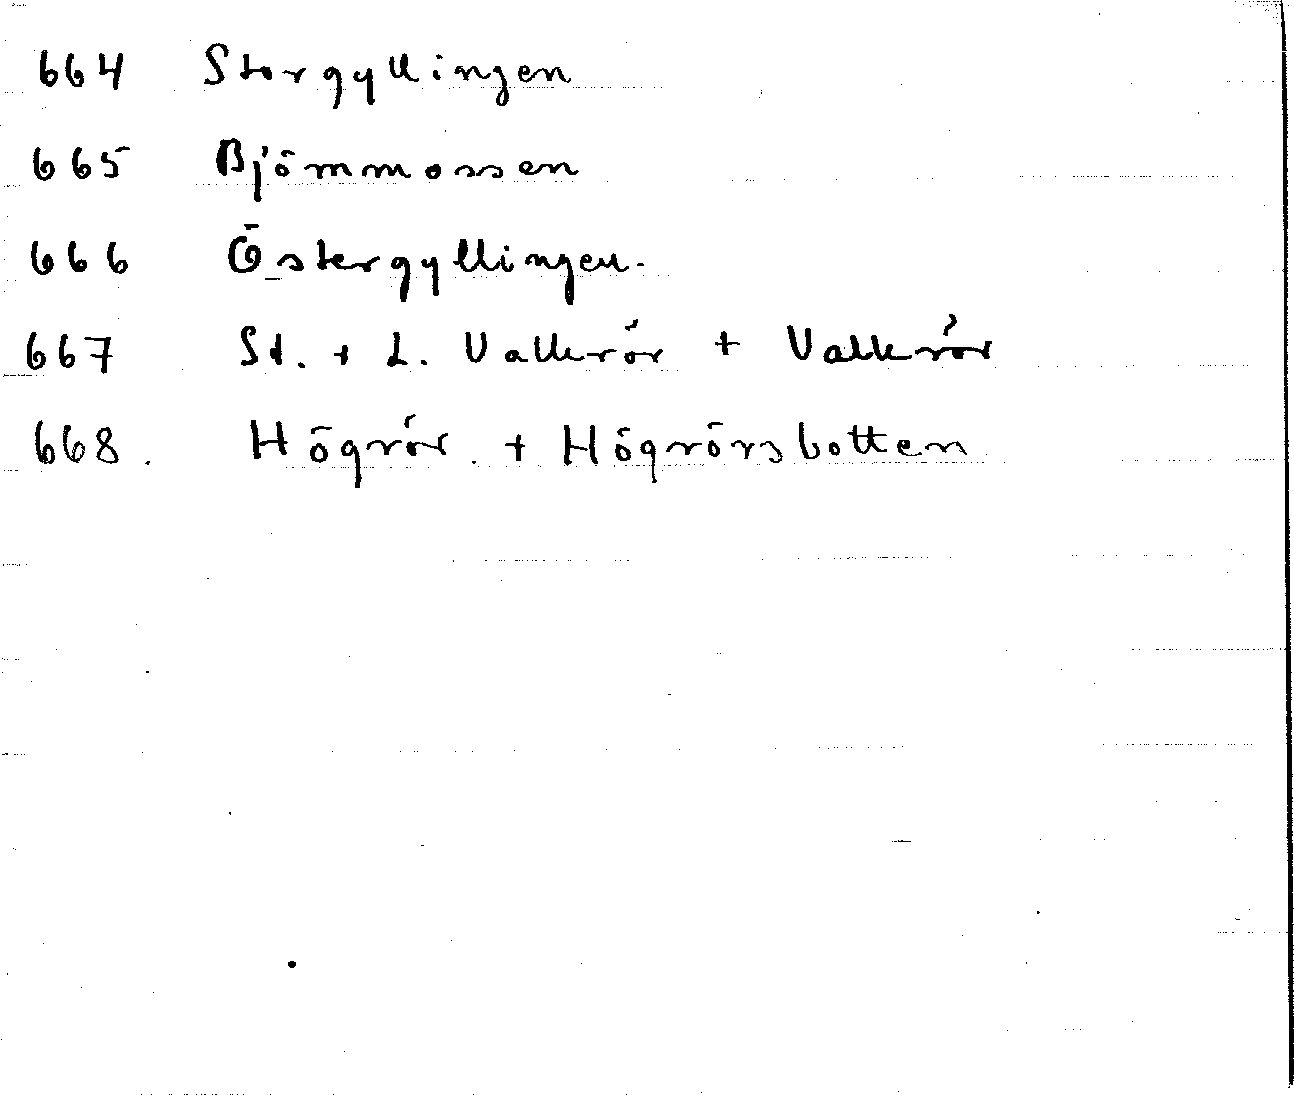 664 Storgyllingen
665 Björnmossen
666 Östergyllingen.
667 St. + L. Vallerör + Vallerör
668. Högrör. + Högrörsbotten